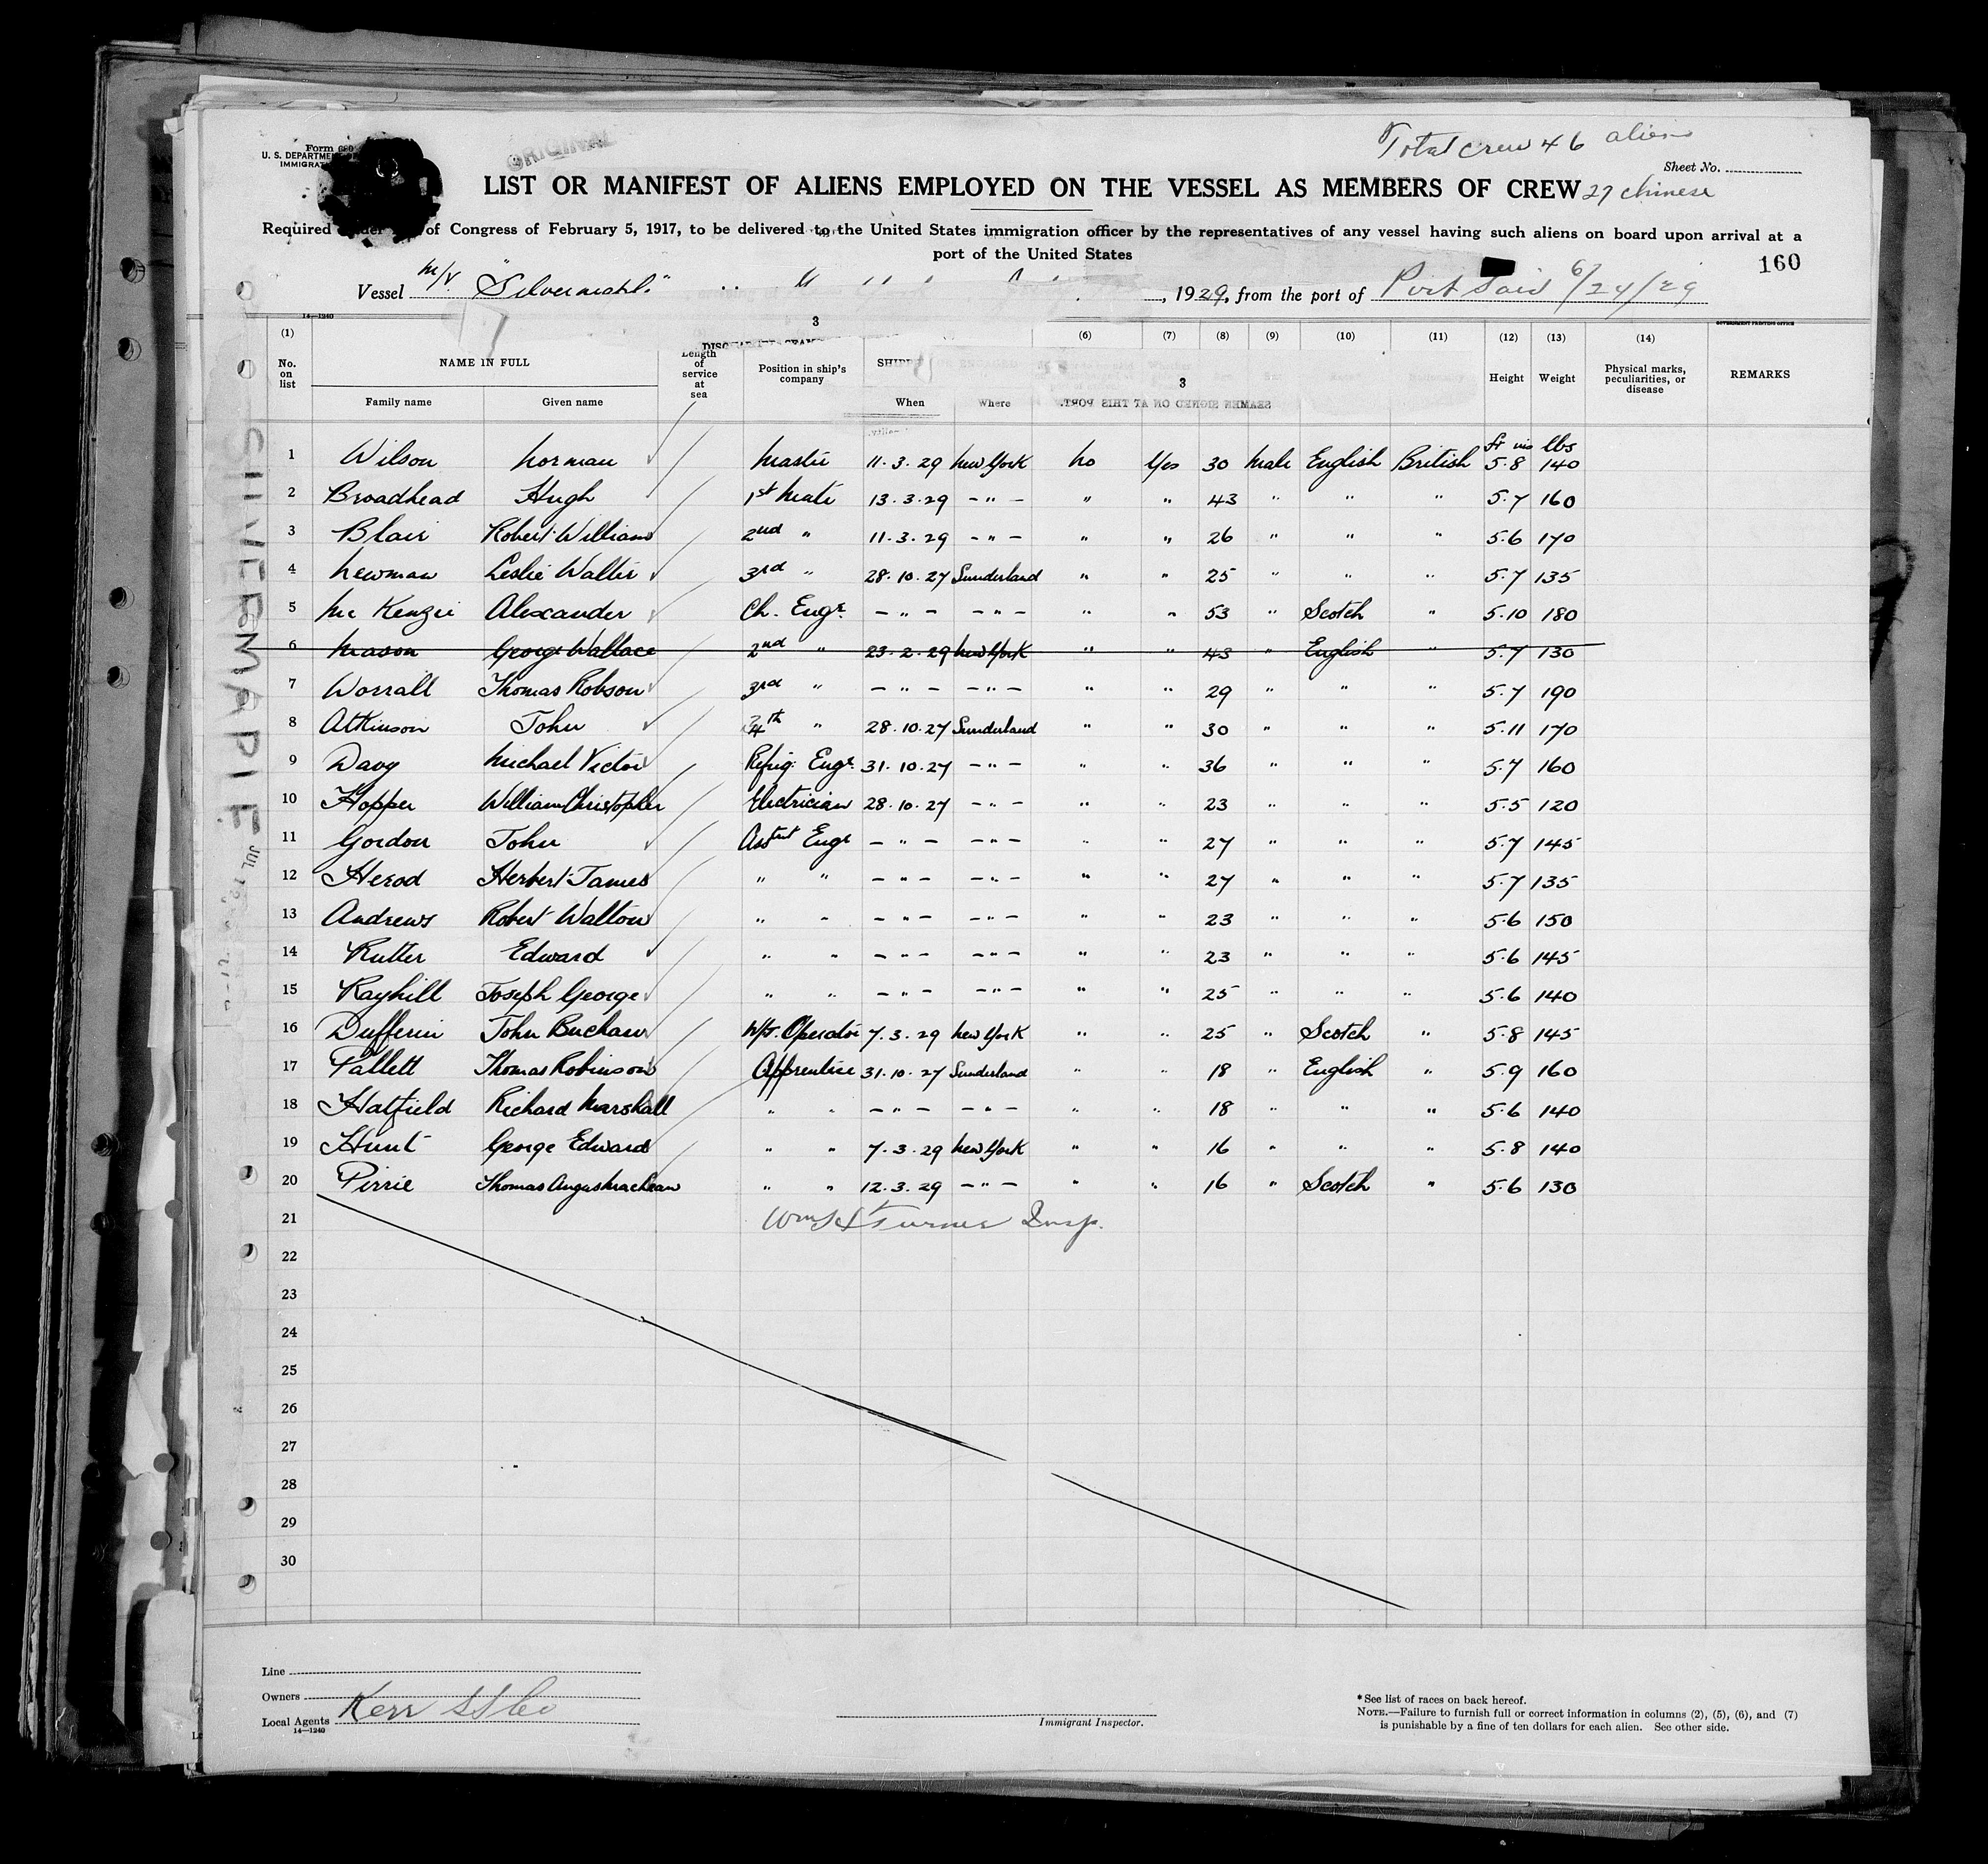 Total crew 46 aliens
ORIGINAL
Form 680
U. S. DEPARTMENT
IMMIGRAT
Sheet No.
LIST OR MANIFEST OF ALIENS EMPLOYED ON THE VESSEL AS MEMBERS OF CREW 27 Chinese
Required of Congress of February 5, 1917, to be delivered to the United States immigration officer by the representatives of any vessel having such aliens on board upon arrival at a
port of the United States
160
Vessel M/V. "Silvermaple" , 1929, from the port of Port Said 6/24/29
14—1240 3 GOVERNMENT PRINTING OFFICE
(1) (6) (7) (8) (9) (10) (11) (12) (13) (14)
No. on list NAME IN FULL Length of service at sea Position in ship's company Height Weight Physical marks, peculiarities, or disease REMARKS
3
Family name Given name When Where SEAMEN SIGNED ON AT THIS PORT.
ft ins lbs
1 Wilson Norman Master 11.3.29 New York No Yes 30 Male English British 5.8 140
2 Broadhead Hugh 1st Mate 13.3.29 – " – " " 43 " " " 5.7 160
3 Blair Robert William 2nd " 11.3.29 – " – " " 26 " " " 5.6 170
4 Newman Leslie Walter 3rd " 28.10.27 Sunderland " " 25 " " " 5.7 135
5 Mc Kenzie Alexander Ch. Engr. – " – – " – " " 53 " Scotch " 5.10 180
6 Mason George Wallace 2nd " 23.2.29 New York " " 43 " English " 5.7 130
7 Worrall Thomas Robson 3rd " – " – – " – " " 29 " " " 5.7 190
8 Atkinson John 4th " 28.10.27 Sunderland " " 30 " " " 5.11 170
9 Davy Michael Victor Refrig. Engr. 31.10.27 – " – " " 36 " " " 5.7 160
10 Hopper William Christopher Electrician 28.10.27 – " – " " 23 " " " 5.5 120
11 Gordon John Asstnt Engr – " – – " – " " 27 " " " 5.7 145
12 Herod Herbert James " " – " – – " – " " 27 " " " 5.7 135
13 Andrews Robert Walton " " – " – – " – " " 23 " " " 5.6 150
14 Rutter Edward " " – " – – " – " " 23 " " " 5.6 145
15 Rayhill Joseph George " " – " – – " – " " 25 " " " 5.6 140
16 Dufferin John Buchan W/T. Operator 7.3.29 New York " " 25 " Scotch " 5.8 145
17 Pallett Thomas Robinson Apprentice 31.10.27 Sunderland " " 18 " English " 5.9 160
18 Hatfield Richard Marshall " " – " – – " – " " 18 " " " 5.6 140
19 Hunt George Edward " " 7.3.29 New York " " 16 " " " 5.8 140
20 Pirrie Thomas Angus Maclean " " 12.3.29 – " – " " 16 " Scotch " 5.6 130
21 Turner Insp.
22
23
24
25
26
27
28
29
30
SILVERMAPLE
JUL
Line
Owners
Local Agents Kerr SS Co
14—1240
Immigrant Inspector.
* See list of races on back hereof.
NOTE.—Failure to furnish full or correct information in columns (2), (5), (6), and (7)
is punishable by a fine of ten dollars for each alien. See other side.